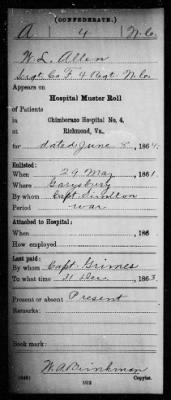 (CONFEDERATE.)
A 4 N.C.
W. L. Allen
Sergt. Co. F. 4 Regt. N.C.
Appears on
Hospital Muster Roll
of Patients in Chimborazo Hospital No. 4,
Richmond, Va.,
for dated June 8, 1864.
Enlisted:
When 29 May, 1861.
Where Garysburg
By whom Capt.
Period war
Attached to Hospital:
When , 186 .
How employed
Last paid:
By whom Capt. Grimes
To what time 31 Dec., 1863.
Present or absent Present
Remarks:
Book mark:
W A Brinkman
Copyist.